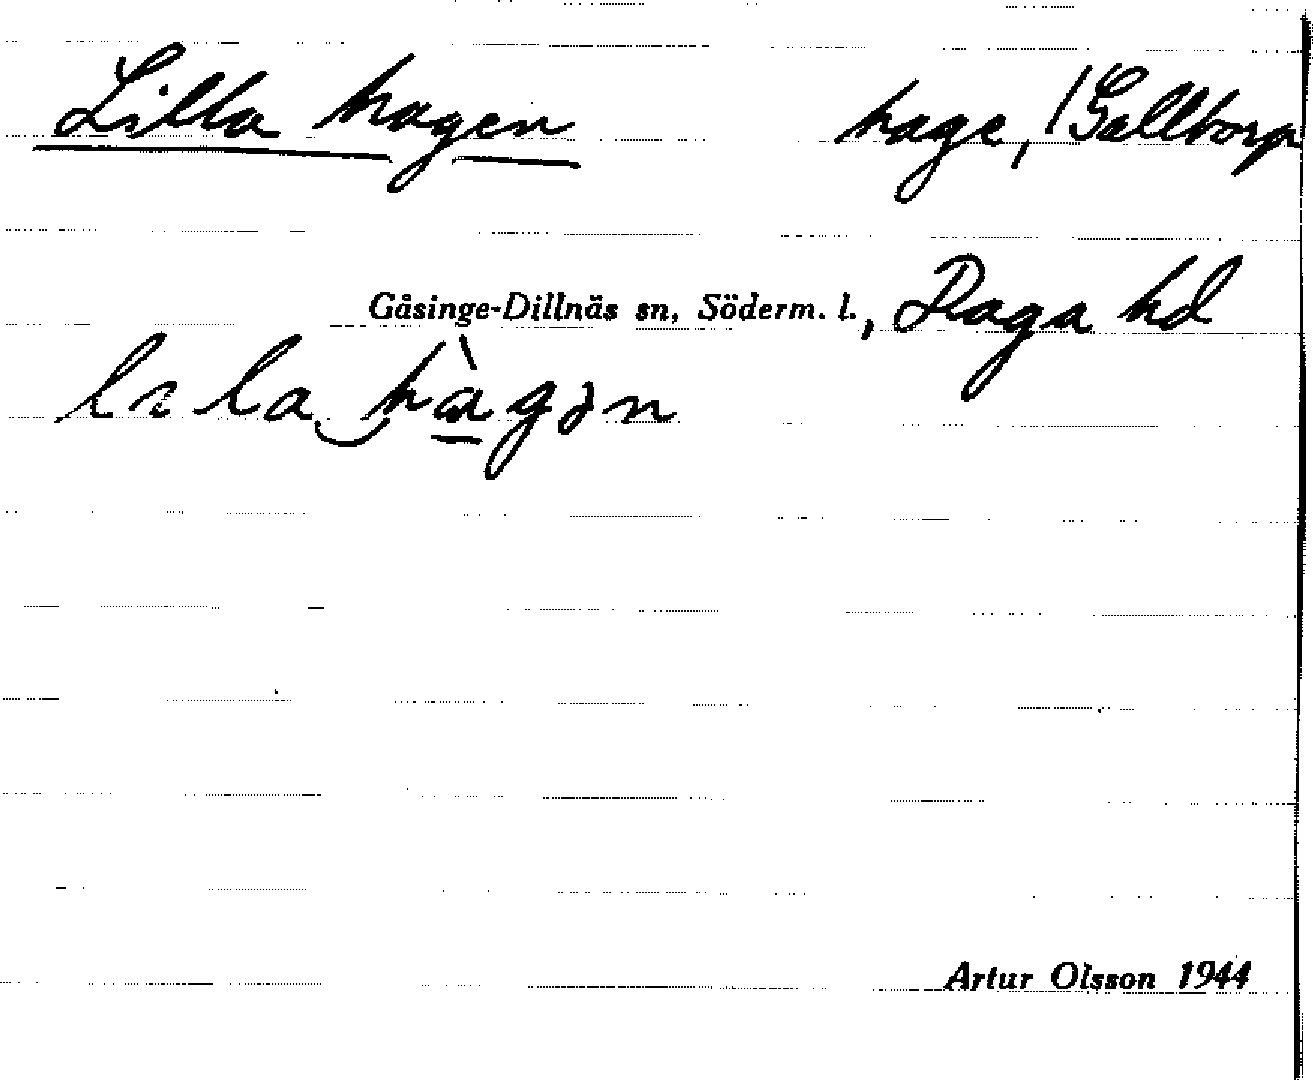 Lilla hagen hage, /Galltorp
Gåsinge-Dillnäs sn, Söderm. l., Daga hd
lɩla‿hàgən
Artur Olsson 1944